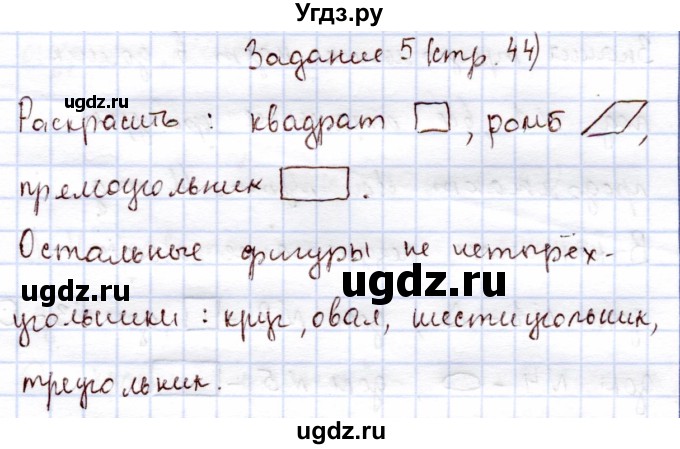 Угдз.ру
Задание 5 (стр. 44)
ugdz.ru ugdz.ru
Раскрасить : квадрат , ромб ,
прямоугольник .
Остальные фигуры не четырёх-
ugdz.ru ugdz.ru
угольники : круг, овал, шестиугольник,
треугольник.
ugdz.ru